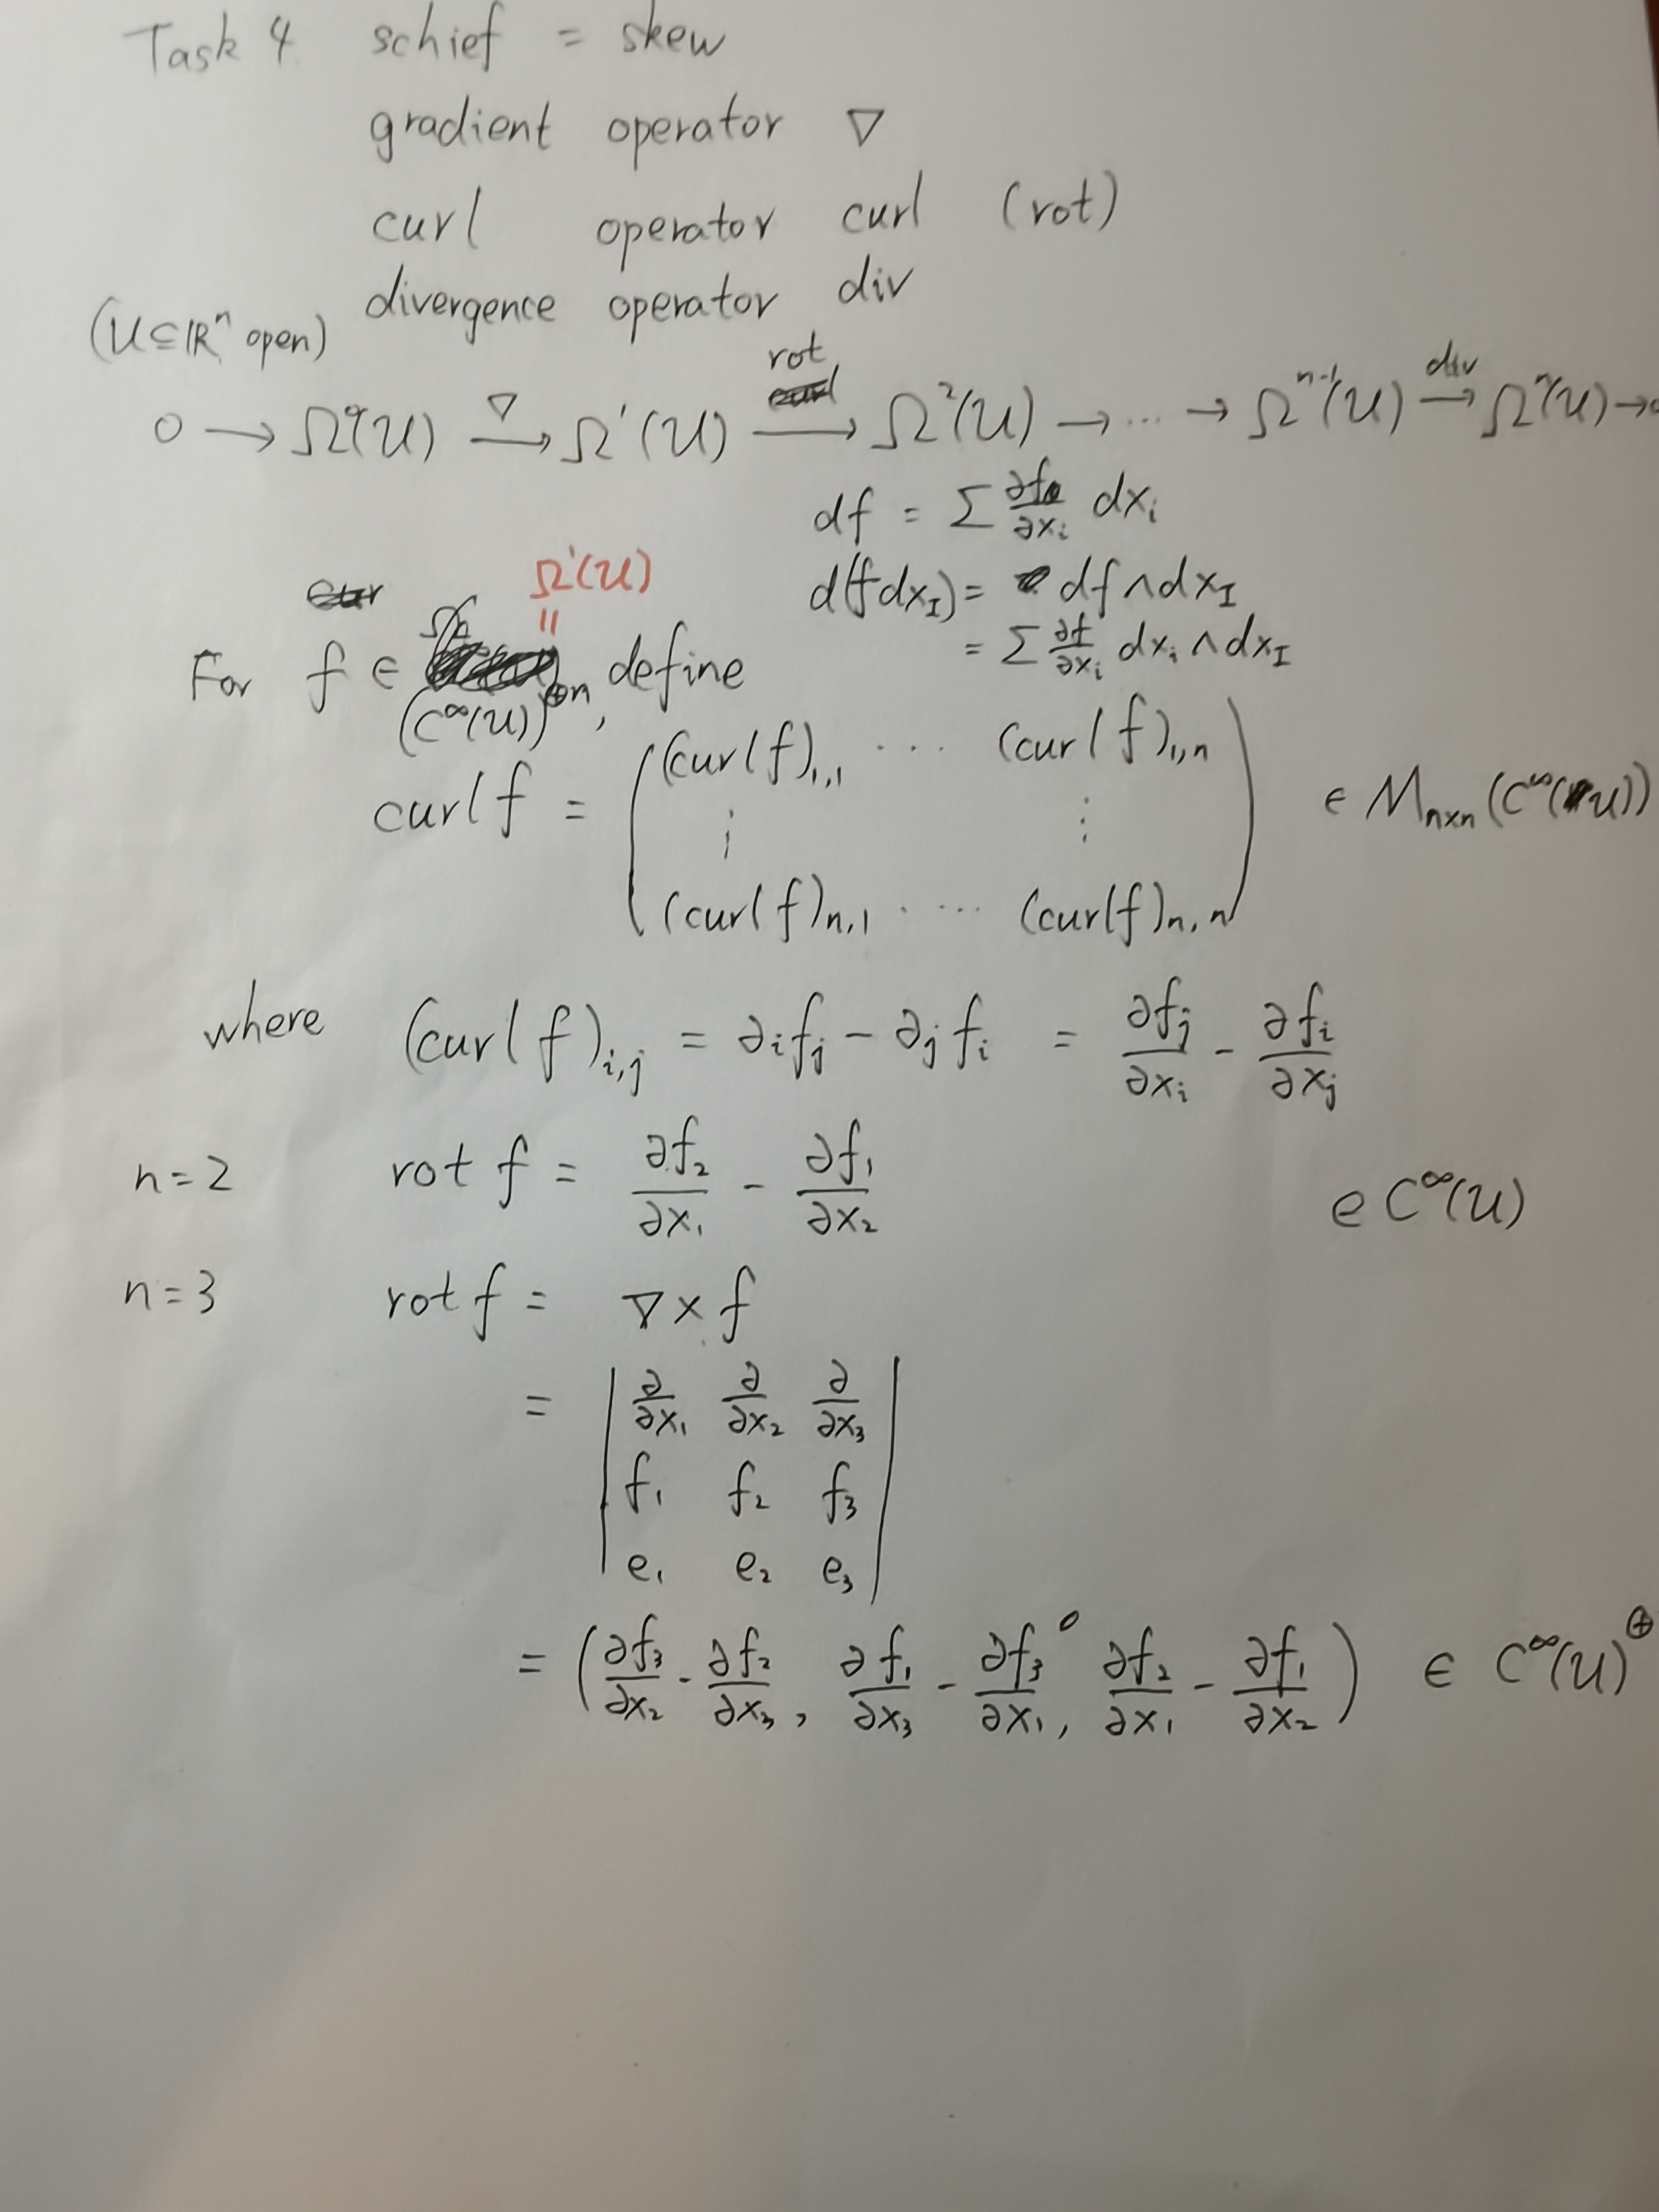 Task 4. schief = skew
gradient operator ∇
curl operator curl (rot)
divergence operator div
(U ⊆ ℝⁿ open)
rot
0 → Ω⁰(U) —∇→ Ω¹(U) —→ Ω²(U) → ... → Ωⁿ⁻¹(U) —div→ Ωⁿ(U) →
df = Σ ∂f/∂xᵢ dxᵢ
Ω¹(U)
=
d(f dx_I) = df ∧ dx_I
= Σ ∂f/∂xᵢ dxᵢ ∧ dx_I
For f ∈ (C^∞(U))^{⊕n}, define
curl f = ( (curl f)₁,₁ ··· (curl f)₁,ₙ
⋮ ⋮
(curl f)ₙ,₁ ···· (curl f)ₙ,ₙ ) ∈ M_{n×n}(C^∞(U))
where (curl f)_{i,j} = ∂ᵢfⱼ − ∂ⱼfᵢ = ∂fⱼ/∂xᵢ − ∂fᵢ/∂xⱼ
n=2 rot f = ∂f₂/∂x₁ − ∂f₁/∂x₂ ∈ C^∞(U)
n=3 rot f = ∇ × f
= | ∂/∂x₁ ∂/∂x₂ ∂/∂x₃ |
f₁ f₂ f₃
e₁ e₂ e₃
= ( ∂f₃/∂x₂ − ∂f₂/∂x₃, ∂f₁/∂x₃ − ∂f₃/∂x₁, ∂f₂/∂x₁ − ∂f₁/∂x₂ ) ∈ C^∞(U)^⊕